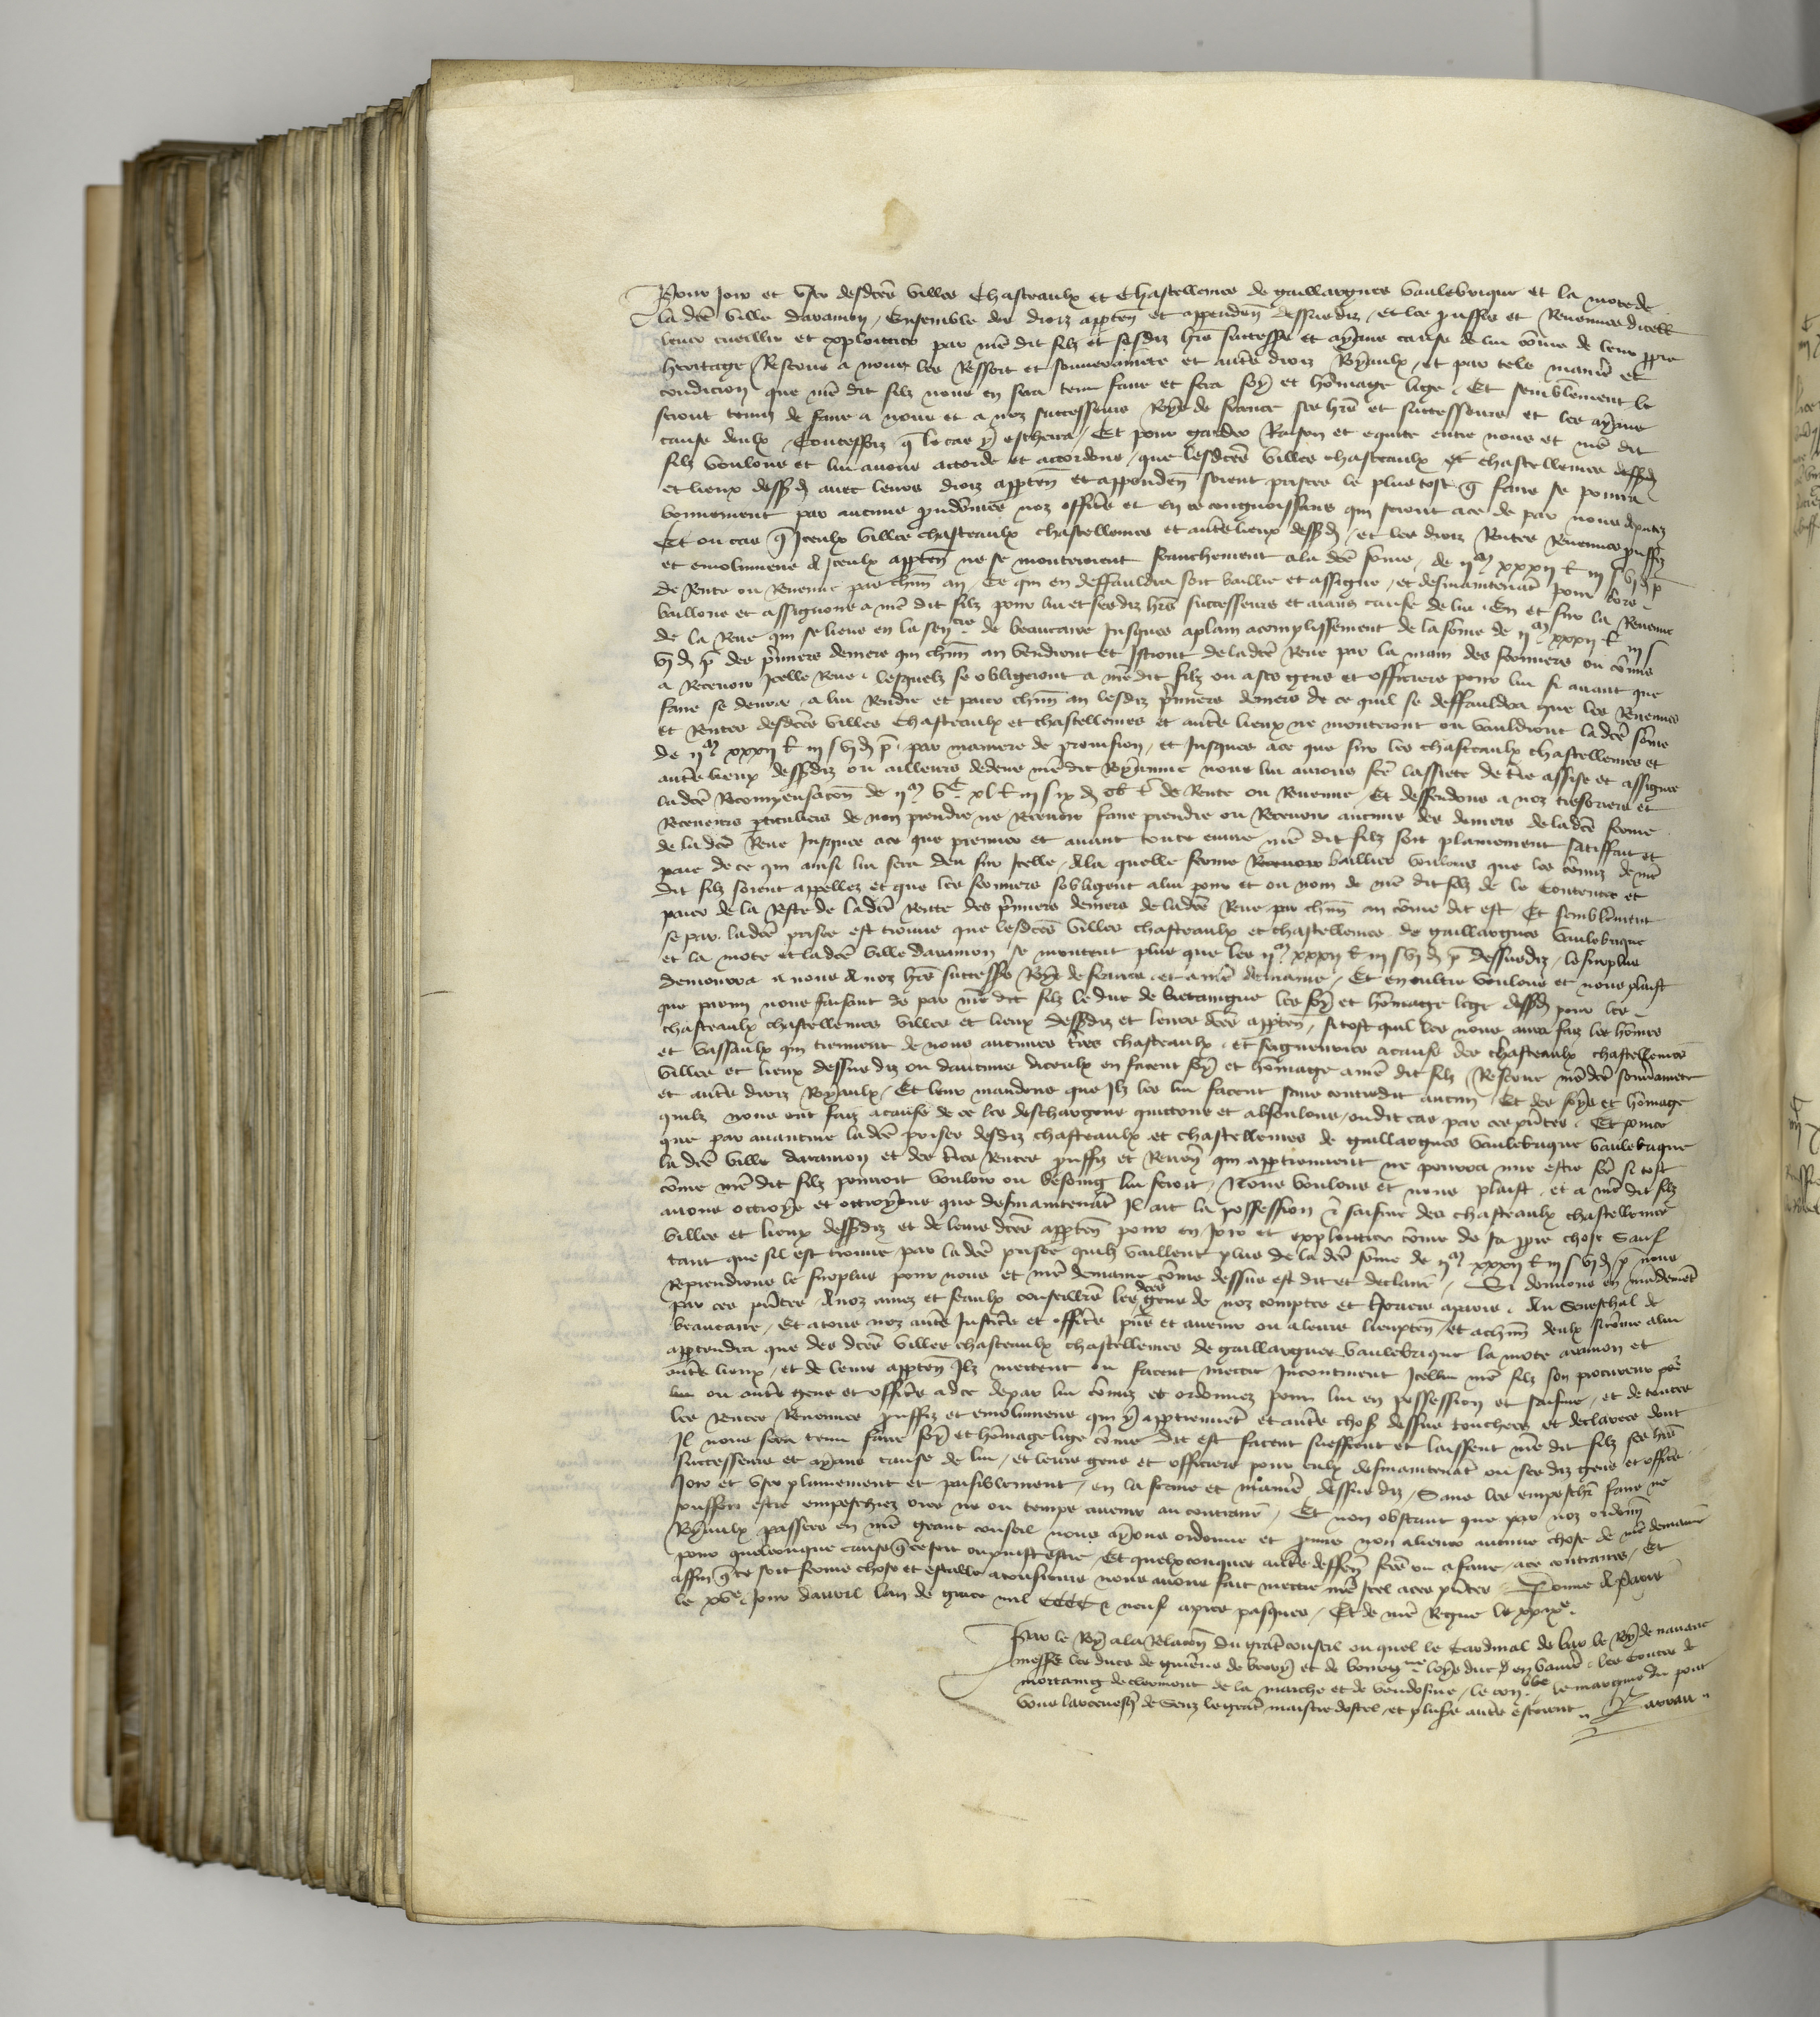 Pour Joir et user desdces villes Chasteaulx et Chastellenies de gaillargues vaulebrique et la mote de
la dce ville daramon / Ensemble des droiz apparten et appenden dessusdiz / et les prouffis et Revenues dicell
leuer cueillir et exploittier par nre dit filz et sesdiz hrs success et ayans cause de lui come de leur ppre
heritage / Reserue a nous les Ressort et souuerainete et autres droiz Royaulx / et par tele maniere et
condicion que nre dit filz nous en sera tenu faire et fera foy et homage lige / Et semblement le
seront tenuz de faire a nous et a noz successeurs Roys de france ses hrs et successeurs et les ayans
cause deulx / Et pour garder Raison et equite entre nous et nre dit
filz voulons et lui auons accorde et accordons / que lesdces villes chasteaulx et chastellenies dessusd
et lieux dessusd auec leurs droiz apparten et appenden soient prisees le plus tost q faire se pourra
bonnement par aucuns preudomes noz officiers et en ce congnoissans qui seront ace de par nous deputez
Et ou cas q Iceulx villes chasteaulx chastellenies et autres lieux dessusd / et les droiz Rentes Revenues prouffiz
et emolumens A Iceulx apparten ne se monteroient franchement ala dce some / de ijm xxxij l iij s vj d p
de Rente ou Revenue par chun an / Ce qui en deffauldra soit baillie et assigne / et desmaintenant pour lors
baillons et assignons a nre dit filz pour lui et sesdiz hrs successeurs et aians cause de lui / En et sur la Revenue
de la Reue qui se lieue en la senesc de beaucaire Jusques aplain acomplissement de la some de ijm xxxij l iij s
vj d p des premiers deniers qui chun an vendront et Istront deladce Reue par la main des fermiers ou comis
a Recevoir Icelle Reue / lesquelz se obligeront a nre dit filz ou ases gens et officiers pour lui si auant que
faire se deura / a lui Rendre et paier chun an lesdiz premiers deniers de ce quil se deffauldra que les Revenues
et Rentes desdces villes Chasteaulx et chastellenies et autres lieux ne monteront ou vauldront ladce some
de ijm xxxij l iij s vj d p / par maniere de prouision / et Jusques ace que sur les chasteaulx chastellenies et
autres lieux dessusdiz ou ailleurs dedens nre dit Royaume nous lui aurons fce lassiete de tre assise et assignee
ladce Recompensacon de ijm vc xl l iij s ix d ob t de Rente ou Revenue / Et deffendons a noz tresoriers et
Receueurs particuliers de non prendre ne Recevoir faire prendre ou Recevoir aucuns des deniers deladce ferme
de ladce Reue Jusques ace que premier et auant toute euure nre dit filz soit plainement satisffait et
paie de ce qui ainsi lui sera deu sur Icelle / Ala quelle ferme baillier voulons que les comis de nre
dit filz soient appellez et que les fermiers sobligent alui pour et ou nom de nre dit filz de le Contenter et
paier de la Reste de ladce Rente des premiers deniers deladce Reue par chun an come dit est / Et semblement
se par ladce prisee est trouue que lesdces villes chasteaulx et chastellenies de gaillargues vaulebrique
et la mote et ladce ville daramon se montent plus que les ijm xxxij l iij s vj d p dessusdiz / le surplus
demourra a nous A noz hrs success Roys de france et a nre demaine / Et en oultre voulons et nous plaist
que parmi nous faisant de par nre dit filz le duc de bretaigne les foy et homage lige dessusd pour les
chasteaulx chastellenies villes et lieux dessusdiz et leurs dces apparten / si tost quil les nous aura faiz les homes
et vassaulx qui tiennent de nous aucunes tres chasteaulx et seigneuries acause des chasteaulx chastellenies
villes et lieux dessus diz ou daucuns diceulx en facent foy et homage a nre dit filz / Reserue nre dce souuerainete
et autres droiz Royaulx / Et leur mandons que Ilz les lui facent sans contredit aucun / Et des foys et homage
quilz nous ont faiz acause de ce les deschargons quictons et absoulons / oudit cas par ces pntes / Et pource
que par auanture ladce prisee desdiz chasteaulx et chastellenies de gaillargues vaulebrique vaulebrique
la dce ville daramon et des tres Rentes prouffiz et Reuen qui appartiennent ne pourra mie estre fce si tost
come nre dit filz pourroit vouloir ou besoing lui seroit / Nous voulons et nous plaist / et a nre dit filz
auons ottroye et ottroyons que desmaintenant Il ait la possession et saisine des chasteaulx chastellenies
villes et lieux dessusdiz et de leurs dces apparten pour en Joir et exploittier come de sa ppre chose Sauf
tant que sil est trouue par ladce prisee quilz vaillent plus de ladce some de ijm xxxij l iij s vj d p nous
Reprendrons le surplus pour nous et nre demaine come dessus est dit et declaire / Si donnons en mandement
par ces pntes A noz amez et feaulx conseillers les dces gens de noz comptes et tresoriers aparis / Au Seneschal de
beaucaire / Et atous noz autres Justiciers et officiers pns et auenir ou aleurs lieuxten / et achun deulx sicome alui
appartendra que des dces villes chasteaulx chastellenies de gaillargues vaulebrique la mote aramon et
autres lieux / et de leurs apparten Ilz mettent ou facent mettre Incontinent Icellui nre filz son procureur pour
lui ou autres gens et officiers adce depar lui comis et ordonnez pour lui en possession et saisine / et de toutes
les Rentes Revenues prouffiz et emolumens qui y appartiennent et autres choses dessus touchees et declarees dont
Il nous sera tenu faire foy et homage lige come dit est facent sueffrent et laissent nre dit filz ses hrs
successeurs et ayans cause de lui / et leurs gens et officiers pour eulx desmaintenant ou ses diz gens et officiers
Joir et user plainement et paisiblement / en la forme et maniere dessus diz / Sans les empescher faire ne
souffrir estre empeschiez ores ne ou temps auenir au contraire / Et non obstant que par noz ordonn
Royaulx passees en nre grant conseil nous ayons ordonne et promis non aliener aucune chose de nre demaine
pour quelconque cause q ce soit ou puist estre / Et quelxconques autres deffens fces ou afaire / ace contraires / Et
affin q ce soit ferme chose et estable atousiours nous auons fait mettre nre seel aces pntes / Donne A Paris
le xve Jour dauril lan de grace mil CCCC et neuf apres pasques / Et de nre Regne le xxixe
Par le Roy ala Relacon du grant conseil ou quel le Cardinal de bar le Roy de nauarre
mess les ducs de guienne de berry et de bourgne loys duc en bauiere / les Contes de
mortaing de clermont de la marche et de vendosme / le le marquis du pont
vous larceuesque de Senz le grant maistre dostel / et plus autres estoient / Barrau